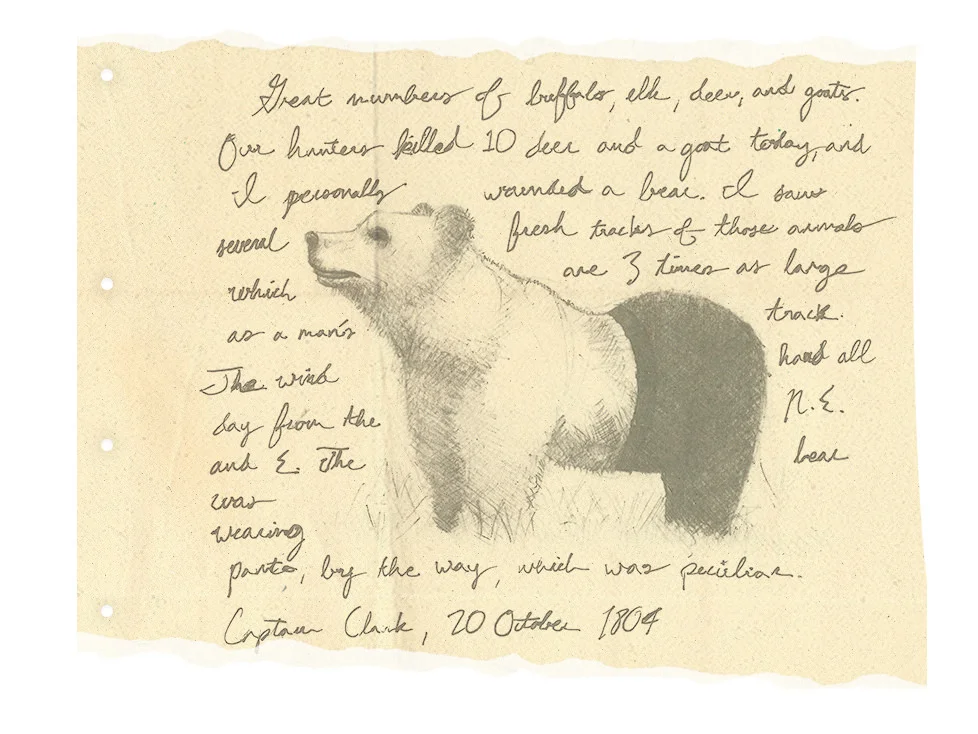 Great numbers of buffalo, elk, deer, and goats.
Our hunters killed 10 deer and a goat today, and
I personally wounded a bear. I saw
several fresh tracks of those animals
which are 3 times as large
as a man's track.
The wind hard all
day from the N.E.
and E. The bear
was
wearing
pants, by the way, which was peculiar.
Captain Clark, 20 October 1804